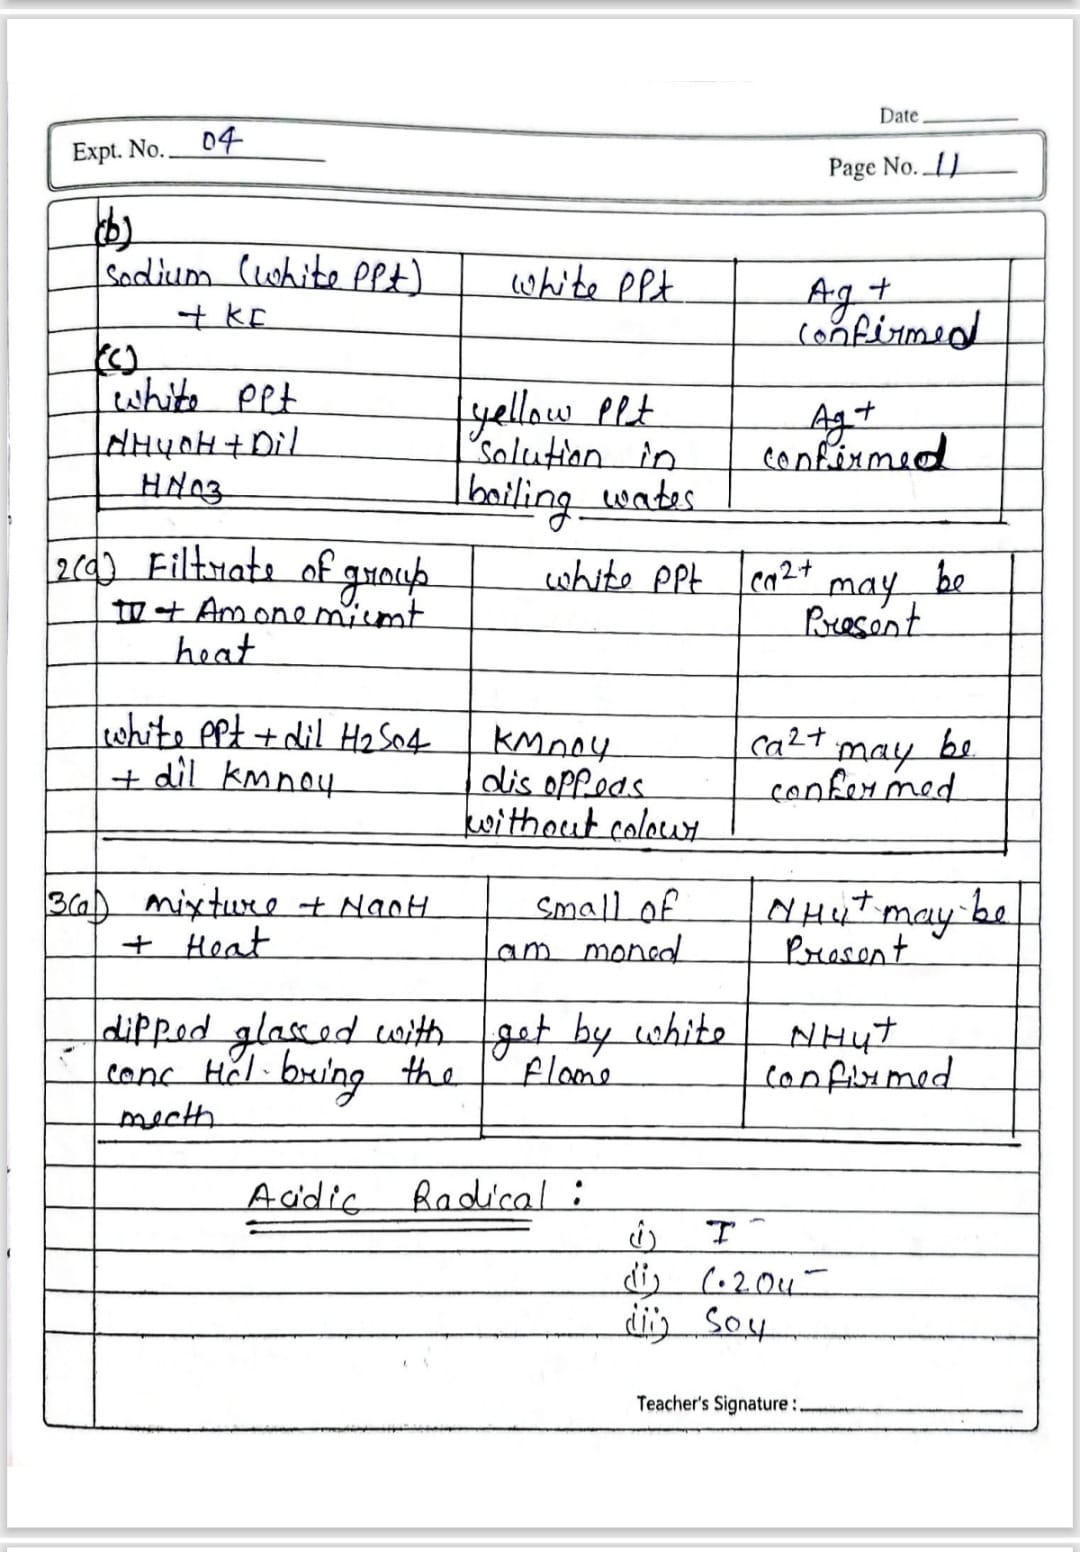 Date
Expt. No. 04
Page No. 11
(b)
Sodium (white PPt) white PPt Ag +
+ KI confirmed
(c)
white PPt yellow PPt Ag+
NH4OH + Dil Solution in confirmed
HNO3 boiling wates
2(a) Filtrate of group white PPt ca2+ may be
IV + Amonemicmt Present
heat
white PPt + dil H2SO4 KMnoy ca2+ may be
+ dil KMnoy disoppeas confermed
without colour
3(a) mixture + NaOH small of NH4+ may be
+ Heat am moned Present
dipped glassed with get by white NH4+
conc Hcl. bring the flame confirmed
mecth
Acidic Radical :
(i) I -
(ii) C.2O4 -
(iii) SO4
Teacher's Signature :